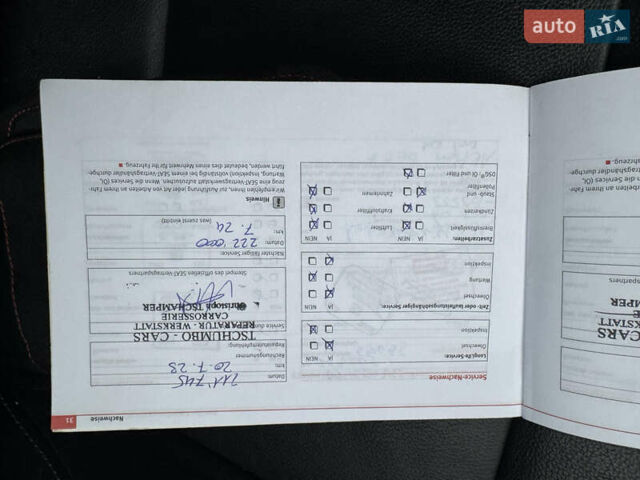 auto RIA.com
Nachweise 31
Service-Nachweise
LongLife-Service:
JA NEIN
Ölwechsel
Inspektion
Zeit- oder laufleistungsabhängiger Service:
JA NEIN
Ölwechsel
Wartung
Inspektion
Zusatzarbeiten:
JA NEIN
JA NEIN
Bremsflüssigkeit
Luftfilter
Zündkerzen
Kraftstofffilter
Staub- und
Pollenfilter
Zahnriemen
DSG®: Öl und Filter
Datum: 211'745
km: 20.7.23
Rechnungsnummer
Reparaturempfehlung:
Service durch
TSCHUMBO - CARS
REPARATUR - WERKSTATT
CARROSSERIE
Christoph TSCHAMPER
Stempel des offiziellen SEAT-Vertragspartners
Nächster fälliger Service:
Datum: 222'000
km: 7.24
(was zuerst eintritt)
Hinweis
Wir empfehlen Ihnen, zur Ausführung jeder Art von Arbeiten an Ihrem Fahr-
zeug eine SEAT-Vertragswerkstatt aufzusuchen. Wenn die Services (Öl,
Wartung, Inspektion) vollständig bei einem SEAT-Vertragshändler durchge-
führt werden, bedeutet dies einen Mehrwert für Ihr Fahrzeug.
CARS
KSTATT
E
AMPER
partners
beiten an Ihrem Fahr-
n die Services (Öl,
rtragshändler durchge-
hrzeug.